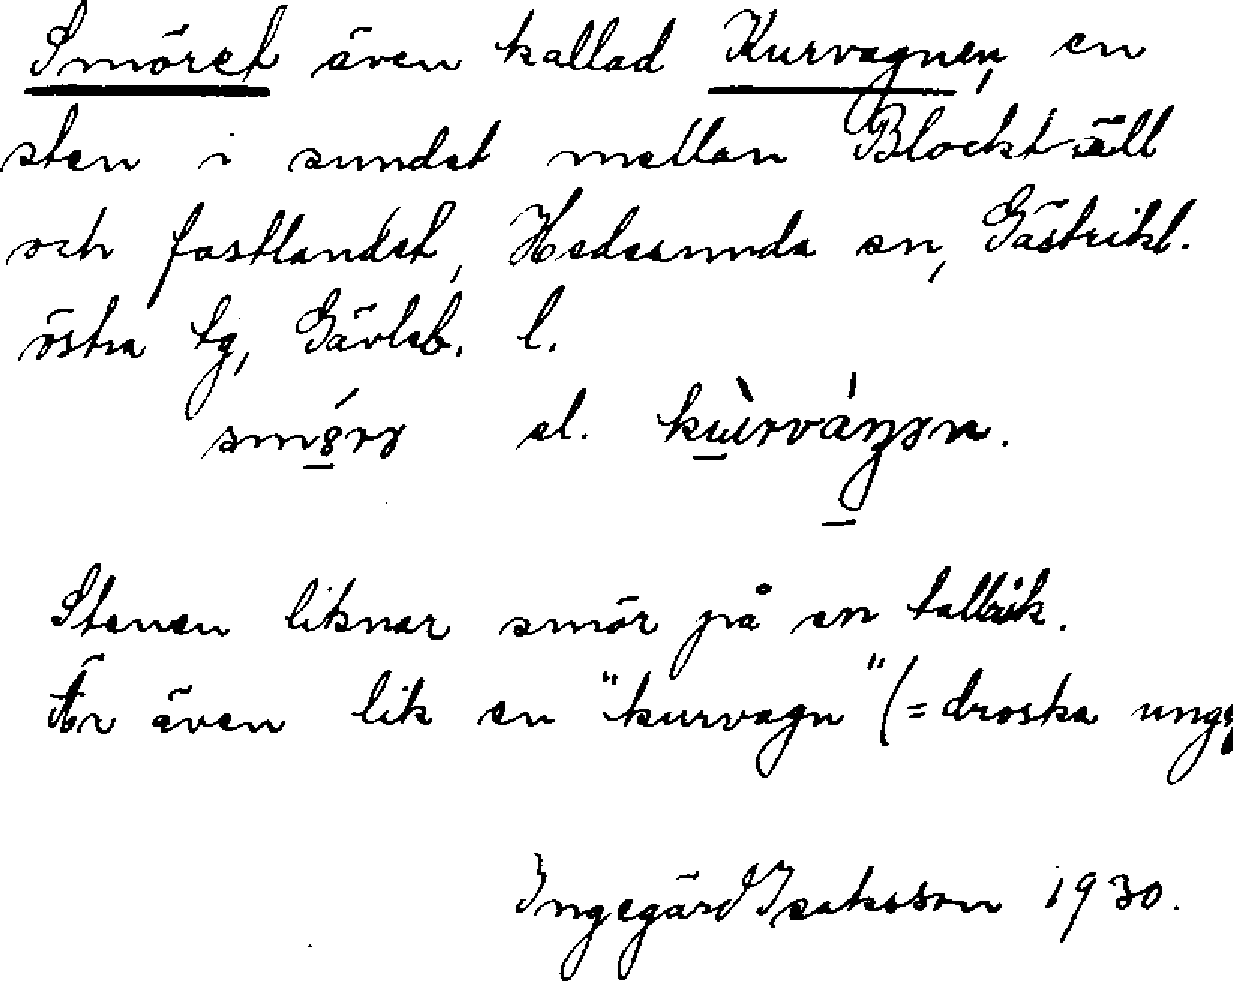 Smöret även kallad Kurvagnen, en
sten i sundet mellan Blockträll
och fastlandet, Hedesunda sn, Gästrikl.
östra tg, Gävleb. l.
el.
Stenen liknar smör på en tallrik.
Är även lik en "kurvagn" (= droska ungg
Ingegärd Isaksson 1930.